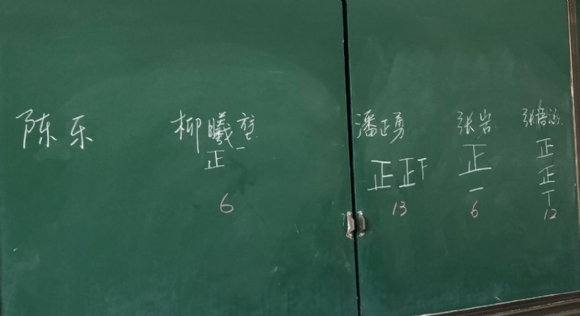 陈乐 柳曦 潘正勇 张岩 张
正一 正正下 正一 正正丅
6 13 6 12